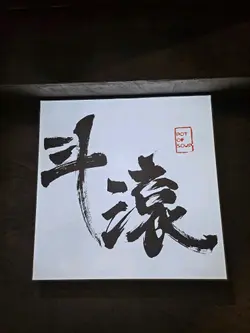 斗滚
POT
OF
SOUP